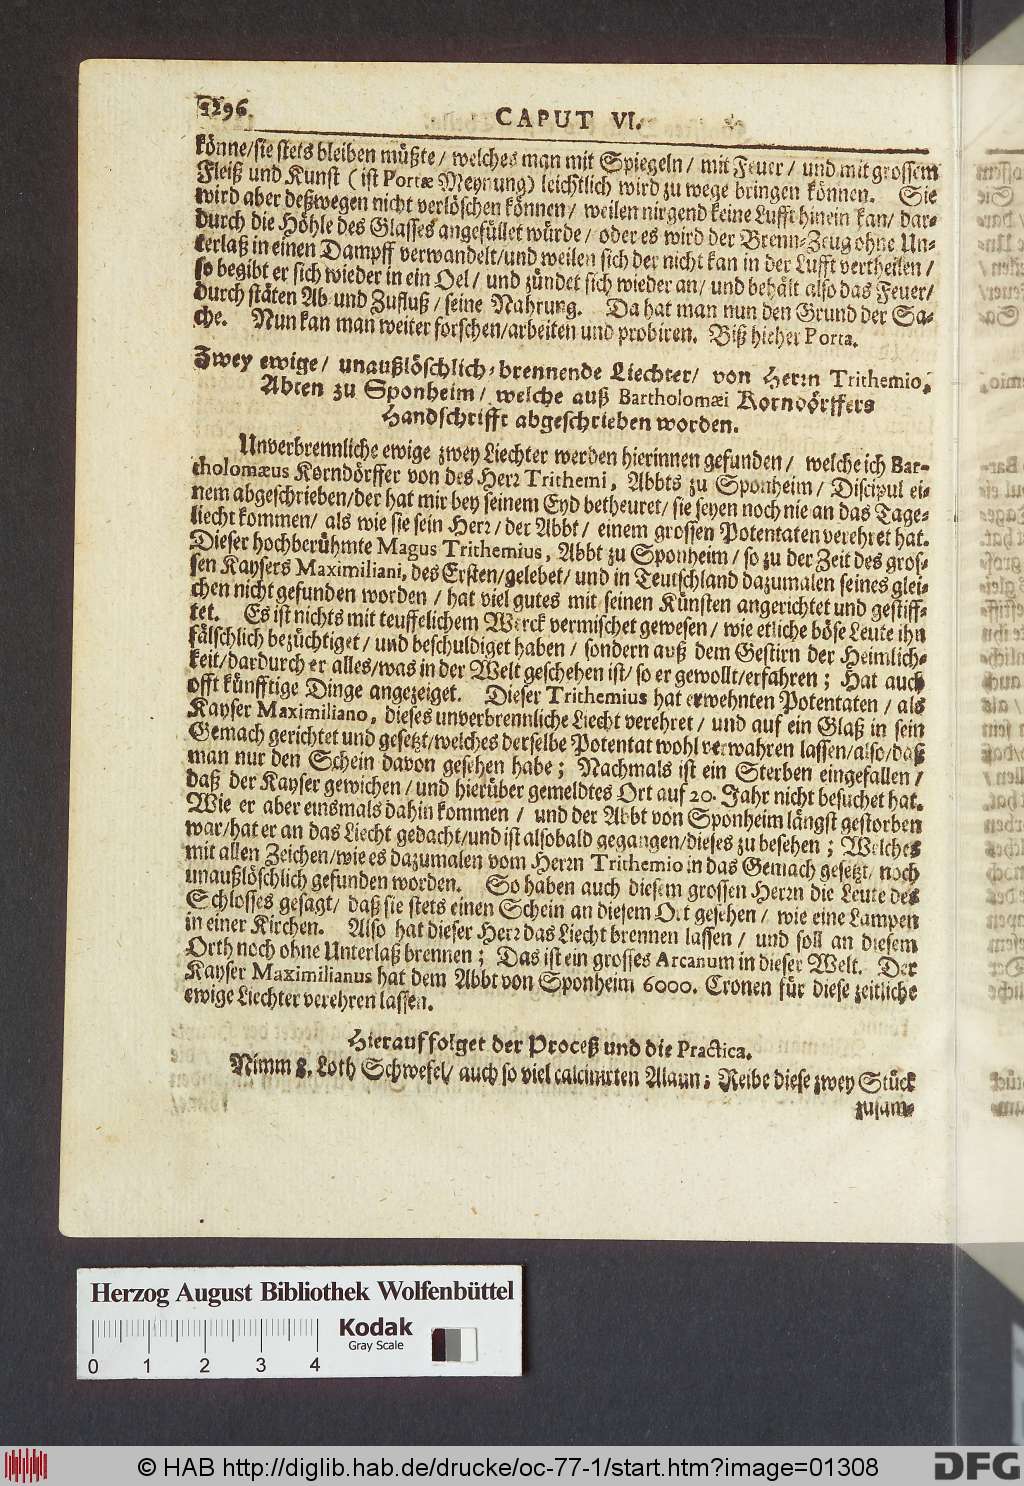 1296
CAPUT VI.
könne/sie stets bleiben müßte/ welches man mit Spiegeln/ mit Feuer/ und mit grossem
Fleiß und Kunst (ist Portæ Meynung) leichtlich wird zu wege bringen können. Sie
wird aber deßwegen nicht verlöschen können/ weilen nirgend keine Lufft hinein kan/ dar-
durch die Höhle des Glasses angefüllet würde/ oder es wird der Brenn-Zeug ohne Un-
terlaß in einen Dampff verwandelt/und weilen sich der nicht kan in der Lufft vertheilen/
so begibt er sich wieder in ein Oel/ und zündet sich wieder an/ und behält also das Feuer/
durch stäten Ab- und Zufluß/ seine Nahrung. Da hat man nun den Grund der Sa-
che. Nun kan man weiter forschen/arbeiten und probiren. Biß hieher Porta.
Zwey ewige/ unaußlöschlich-brennende Liechter/ von Herrn Trithemio,
Abten zu Sponheim/ welche auß Bartholomæi Korndörffers
Handschrifft abgeschrieben worden.
Unverbrennliche ewige zwey Liechter werden hierinnen gefunden/ welche ich Bar-
tholomæus Korndörffer von des Herr Trithemi, Abbts zu Sponheim/ Discipul ei-
nem abgeschrieben/der hat mir bey seinem Eyd betheuret/ sie seyen noch nie an das Tage-
liecht kommen/ als wie sie sein Herr/ der Abbt/ einem grossen Potentaten verehret hat.
Dieser hochberühmte Magus Trithemius, Abbt zu Sponheim/ so zu der Zeit des gros-
sen Kaysers Maximiliani, des Ersten/gelebet/ und in Teutschland dazumalen seines glei-
chen nicht gefunden worden/ hat viel gutes mit seinen Künsten angerichtet und gestiff-
tet. Es ist nichts mit teuffelichem Werck vermischet gewesen/ wie etliche böse Leute ihn
fälschlich bezüchtiget/ und beschuldiget haben/ sondern auß dem Gestirn der Heimlich-
keit/dardurch er alles/was in der Welt geschehen ist/ so er gewollt/erfahren; Hat auch
offt künfftige Dinge angezeiget. Dieser Trithemius hat erwehnten Potentaten/ als
Kayser Maximiliano, dieses unverbrennliche Liecht verehret/ und auf ein Glaß in sein
Gemach gerichtet und gesetzt/welches derselbe Potentat wohl verwahren lassen/also/daß
man nur den Schein davon gesehen habe; Nachmals ist ein Sterben eingefallen/
daß der Kayser gewichen/ und hierüber gemeldtes Ort auf 20. Jahr nicht besuchet hat.
Wie er aber einsmals dahin kommen/ und der Abbt von Sponheim längst gestorben
war/hat er an das Liecht gedacht/und ist alsobald gegangen/dieses zu besehen; Welches
mit allen Zeichen/wie es dazumalen vom Herrn Trithemio in das Gemach gesetzt/ noch
unaußlöschlich gefunden worden. So haben auch diesem grossen Herrn die Leute des
Schlosses gesagt/ daß sie stets einen Schein an diesem Ort gesehen/ wie eine Lampen
in einer Kirchen. Also hat dieser Herr das Liecht brennen lassen/ und soll an diesem
Orth noch ohne Unterlaß brennen; Das ist ein grosses Arcanum in dieser Welt. Der
Kayser Maximilianus hat dem Abbt von Sponheim 6000. Cronen für diese zeitliche
ewige Liechter verehren lassen.
Hierauf folget der Proceß und die Practica.
Nimm 8. Loth Schwefel/ auch so viel calcinirten Alaun; Reibe diese zwey Stück
zusam-
Herzog August Bibliothek Wolfenbüttel
Kodak
Gray Scale
0 1 2 3 4
© HAB http://diglib.hab.de/drucke/oc-77-1/start.htm?image=01308
DFG